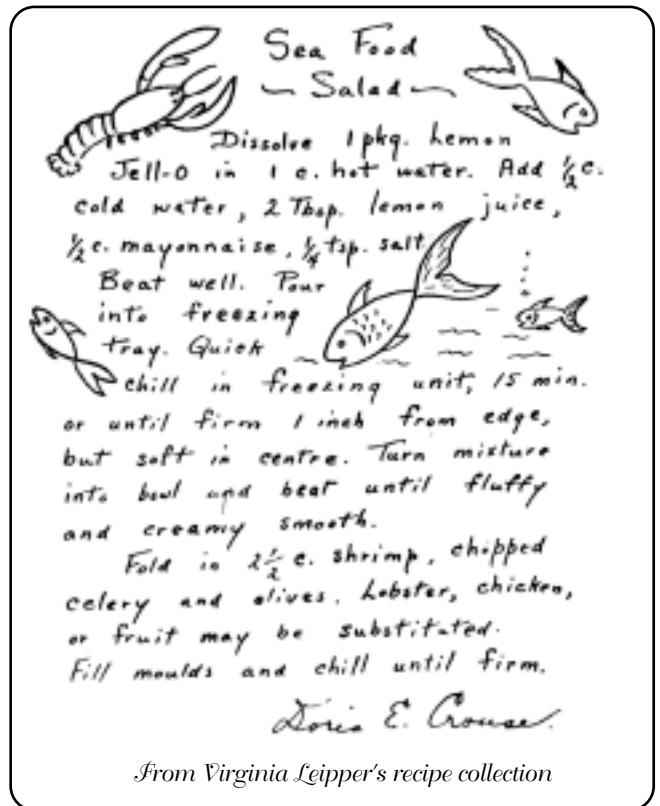 Sea Food
~ Salad ~
Dissolve 1 pkg. Lemon
Jell-O in 1 c. hot water. Add ½ c.
cold water, 2 Tbsp. lemon juice,
½ c. mayonnaise, ¼ tsp. salt.
Beat well. Pour
into freezing
tray. Quick
chill in freezing unit, 15 min.
or until firm 1 inch from edge,
but soft in centre. Turn mixture
into bowl and beat until fluffy
and creamy smooth.
Fold in 2½ c. shrimp, chipped
celery and olives. Lobster, chicken,
or fruit may be substituted.
Fill moulds and chill until firm.
Doris E. Crouse.
From Virginia Leipper's recipe collection